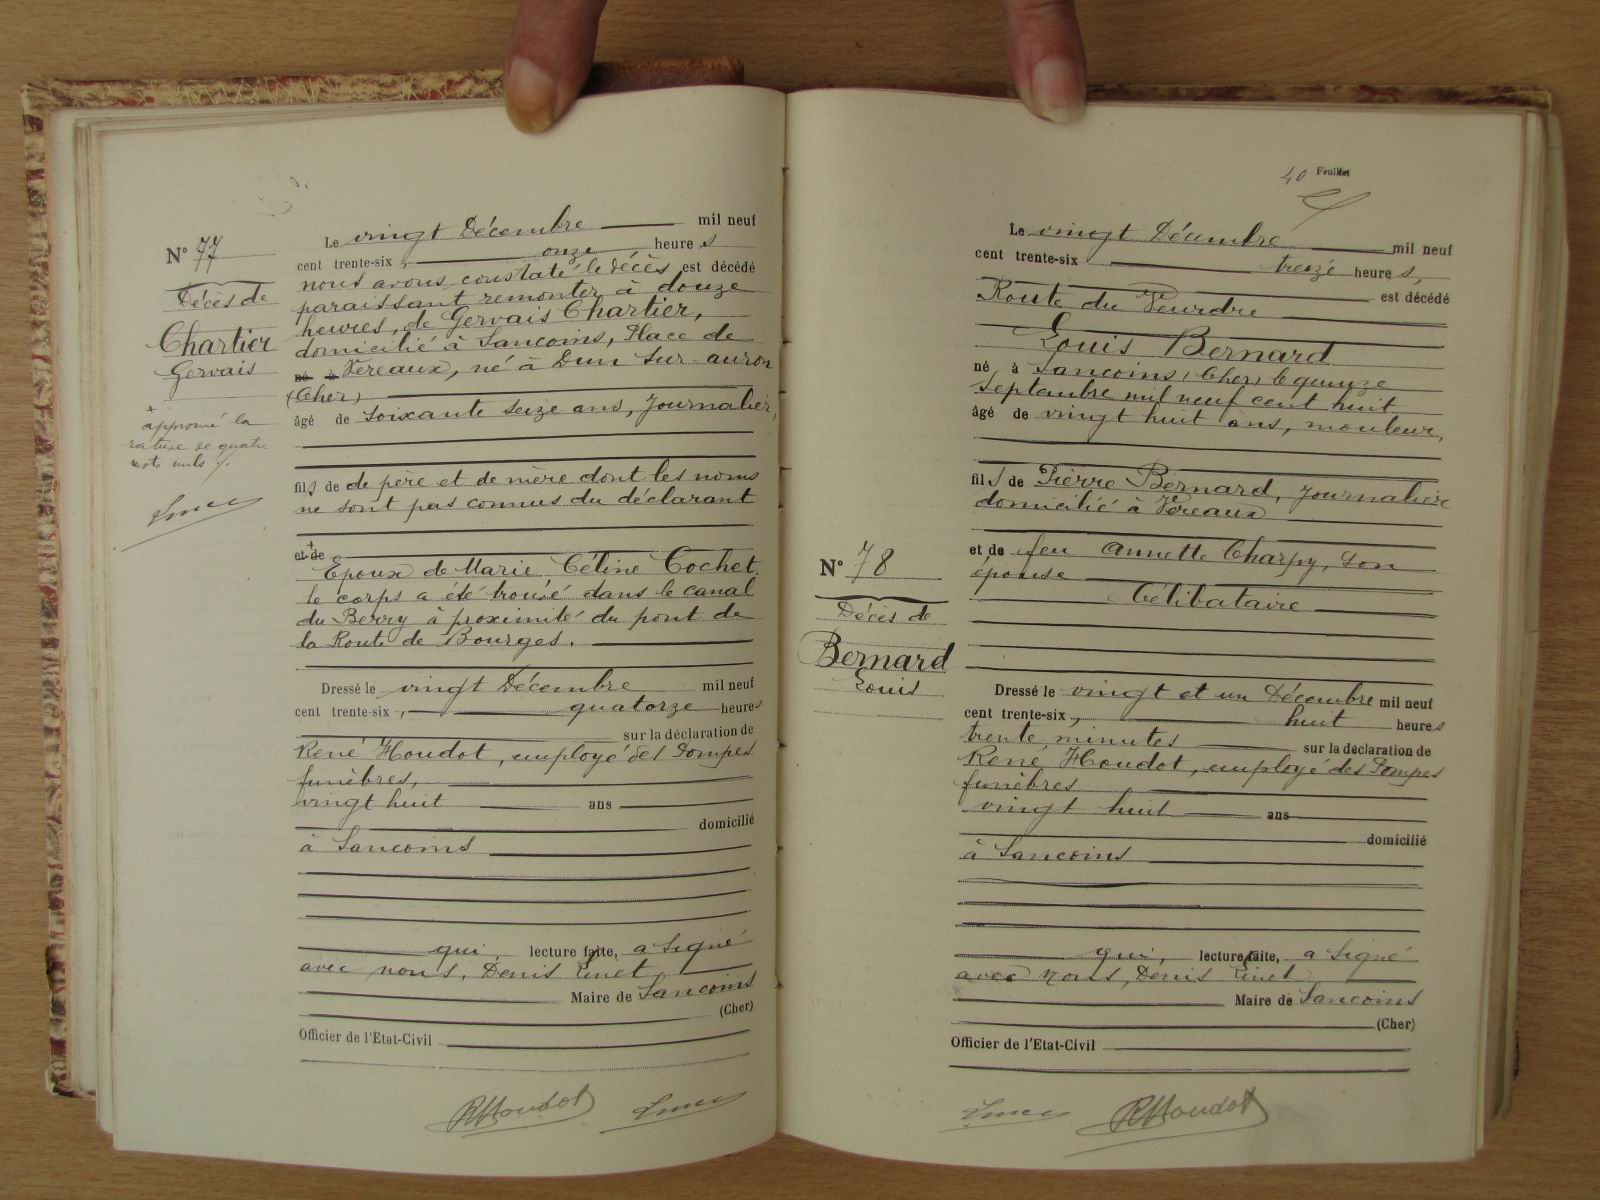 N° 77
Décès de
Chartier
Gervais
+
approuvé la
rature de quatre
mots nuls
Le vingt Décembre mil neuf
cent trente-six, onze heures
nous avons constaté le décès est décédé
paraissant remonter à douze
heures, de Gervais Chartier,
domicilié à Sancoins, Place de
né à Vereaux, né à Dun sur auron
(Cher)
âgé de soixante seize ans, journalier,
fils de de père et de mère dont les noms
ne sont pas connus du déclarant
et de +
Epoux de Marie Céline Cochet.
le corps a été trouvé dans le canal
du Berry à proximité du pont de
la Route de Bourges.
Dressé le vingt Décembre mil neuf
cent trente-six, quatorze heures
sur la déclaration de
René Houdot, employé des Pompes
funèbres,
vingt huit ans
domicilié
à Sancoins
qui, lecture faite, a signé
avec nous, Denis
Maire de Sancoins
(Cher)
Officier de l'Etat-Civil
RHoudot
40 Feuillet
N° 78
Décès de
Bernard
Louis
Le vingt Décembre mil neuf
cent trente-six, treize heures,
Route du Veurdre est décédé
Louis Bernard
né à Sancoins (Cher) le quinze
Septembre mil neuf cent huit
âgé de vingt huit ans, mouleur,
fils de Pierre Bernard, journalier
domicilié à Vereaux
et de feu Annette Charpy, son
épouse
Célibataire
Dressé le vingt et un Décembre mil neuf
cent trente-six, huit heures
trente minutes sur la déclaration de
René Houdot, employé des Pompes
funèbres
vingt huit ans
domicilié
à Sancoins
qui, lecture faite, a signé
avec nous, Denis
Maire de Sancoins
(Cher)
Officier de l'Etat-Civil
RHoudot